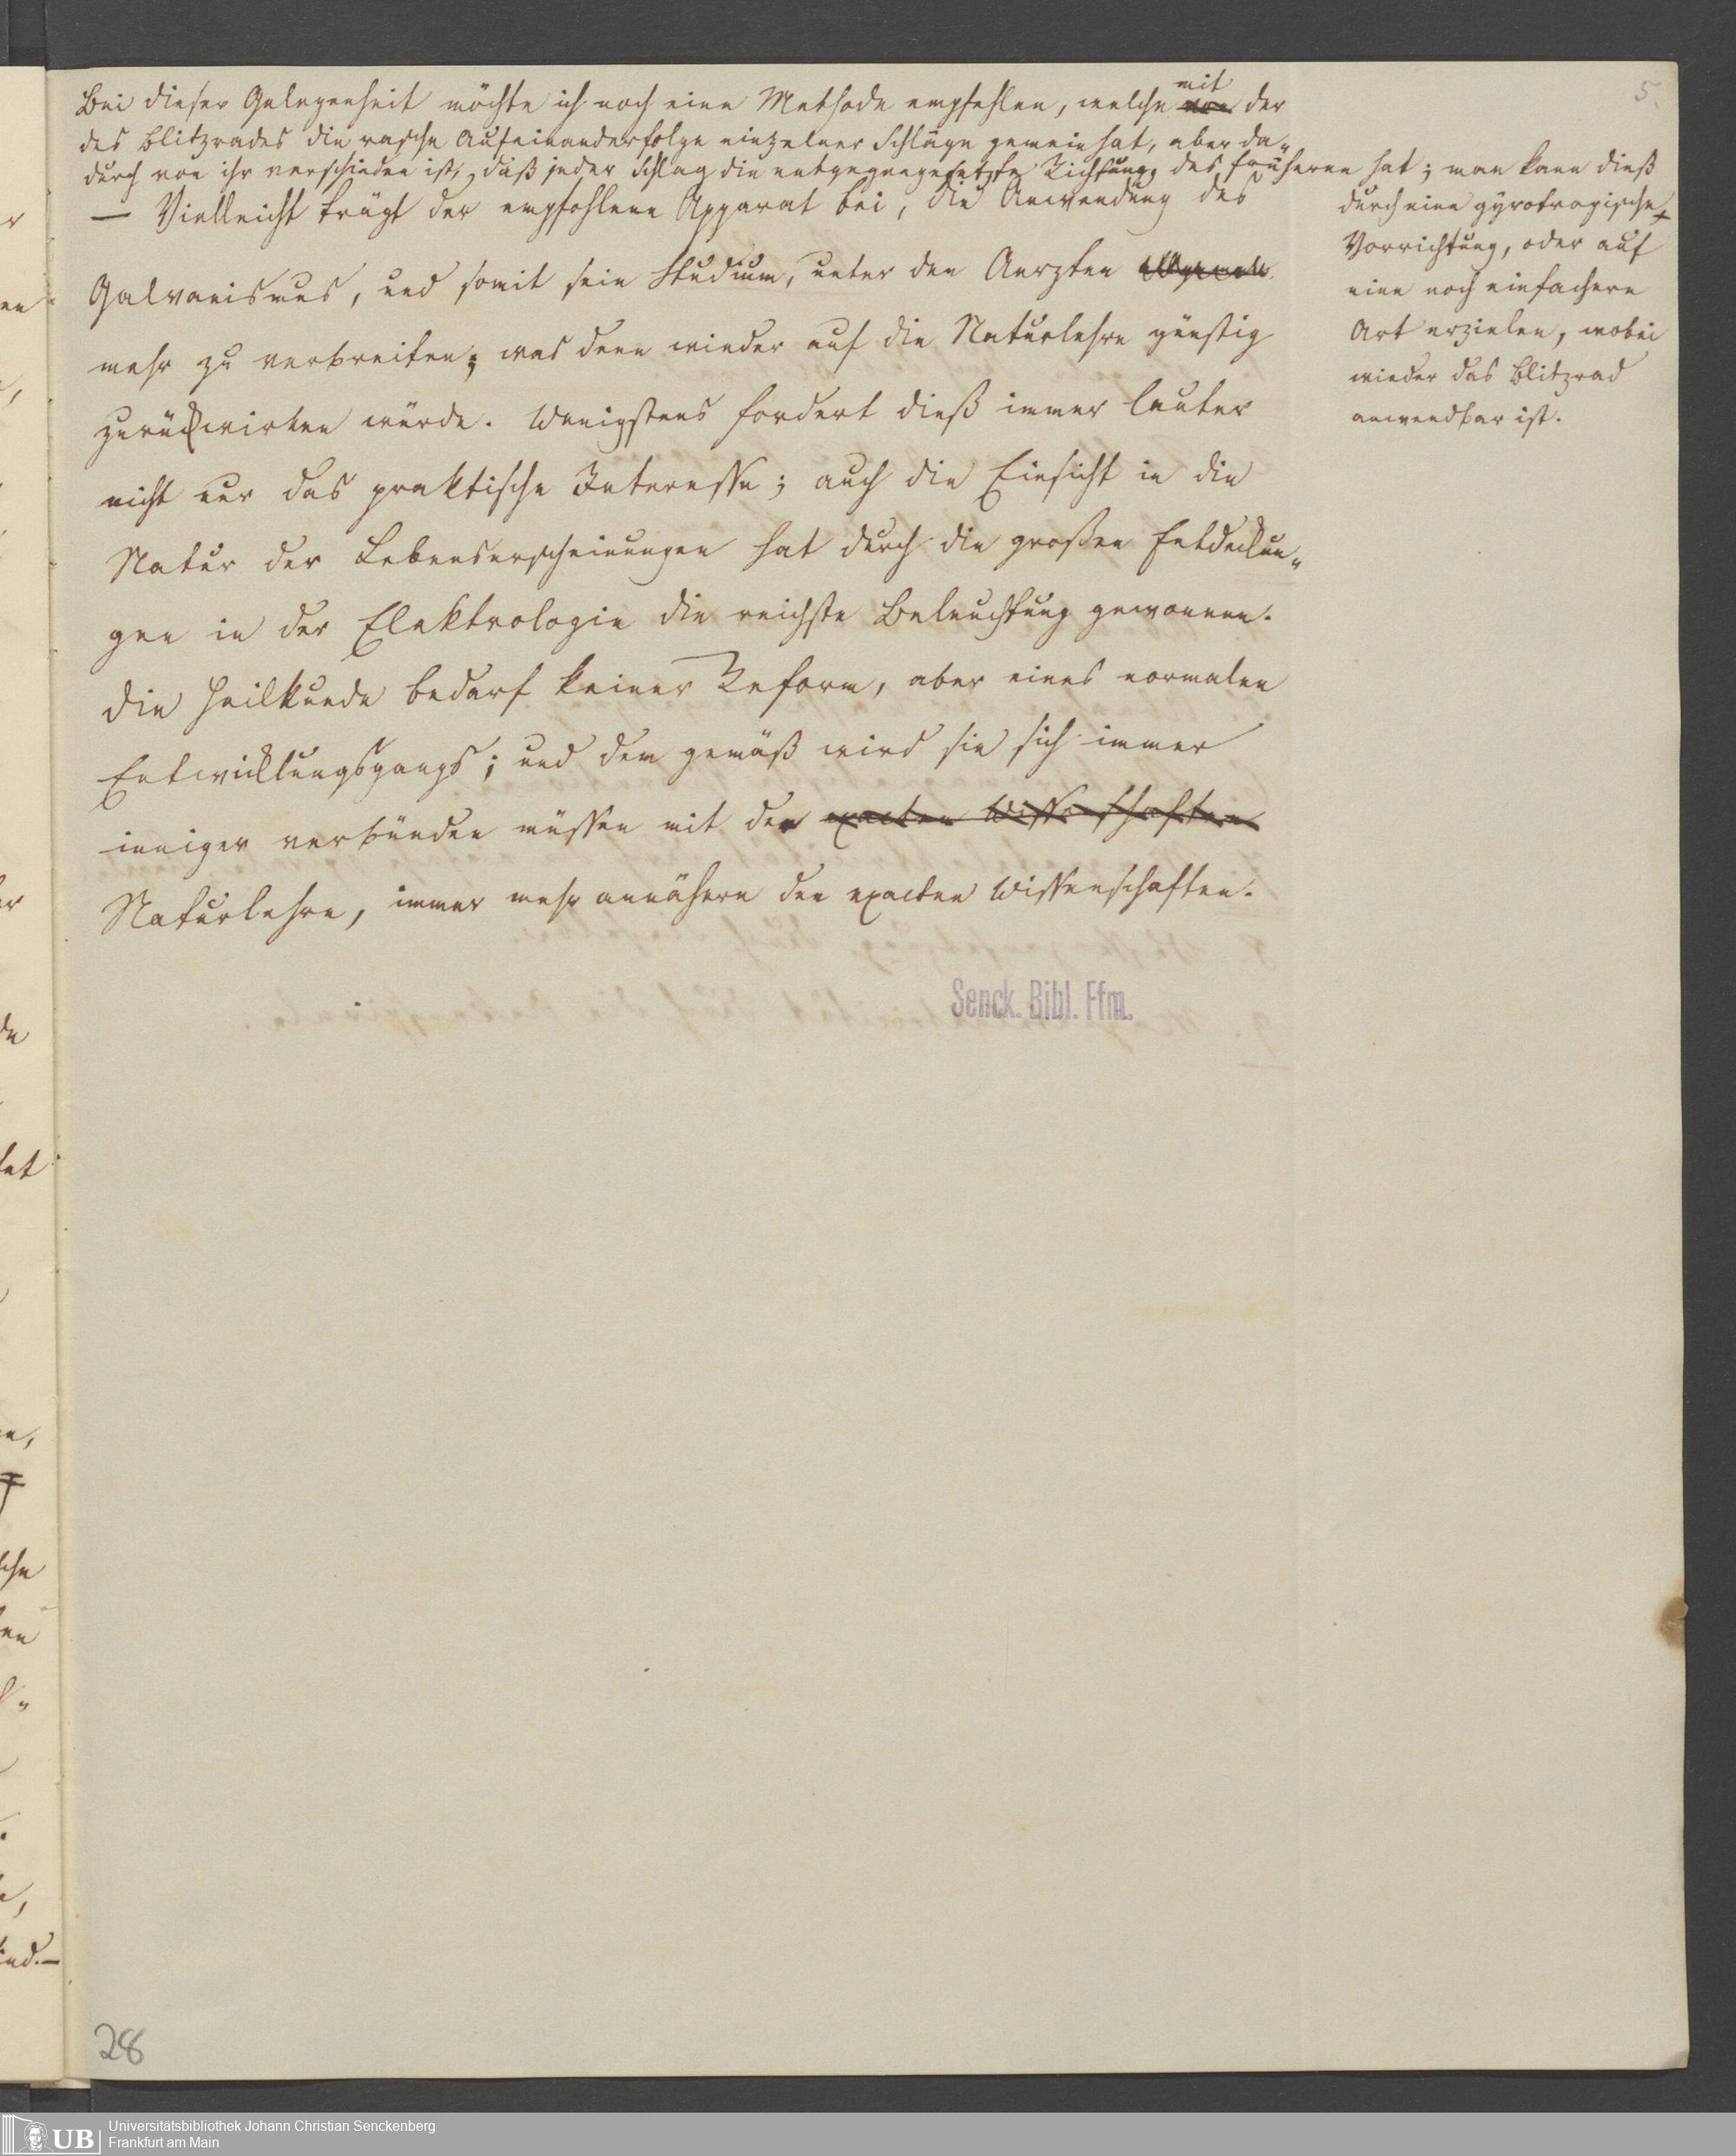 5.
Bei dieser Gelegenheit möchte ich noch eine Methode empfehlen, welche mit der
des Blitzrades die rasche Aufeinanderfolge einzelner Schläge gemein hat, aber da„
durch von ihr verschieden ist, daß jeder Schlag die entgegengesetzte Richtung des früheren hat; man kann dieß
durch eine gyrotropische
Vorrichtung, oder auf
eine noch einfachere
Art erzielen, wobei
wieder das Blitzrad
anwendbar ist.
— Vielleicht trägt der empfohlene Apparat bei, die Anwendung des
Galvanismus, und somit sein Studium, unter den Aerzten
mehr zu verbreiten; was denn wieder auf die Naturlehre günstig
zurückwirken würde. Wenigstens fordert dieß immer lauter
nicht nur das praktische Interesse; auch die Einsicht in die
Natur der Lebenserscheinungen hat durch die großen Entdeckun„
gen in der Elektrologie die reichste Beleuchtung gewonnen.
Die Heilkunde bedarf keiner Reform, aber eines normalen
Entwicklungsgangs; und dem gemäß wird sie sich immer
inniger verbünden müssen mit der exacten Wissenschaften
Naturlehre, immer mehr annähern den exacten Wissenschaften.
Senck. Bibl. Ffm.
28
UB
Universitätsbibliothek Johann Christian Senckenberg
Frankfurt am Main